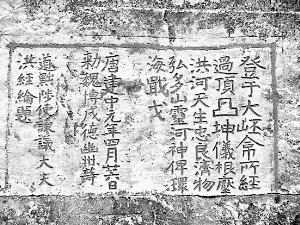 登于大岯命所經
過頂凸坤儀根壓
洪河天生忠良濟物
弘多山靈河神俾環
海戢戈
唐建中元年四月廿六日
勅魏博成德幽州等
道黜陟使諫議大夫
洪經綸題